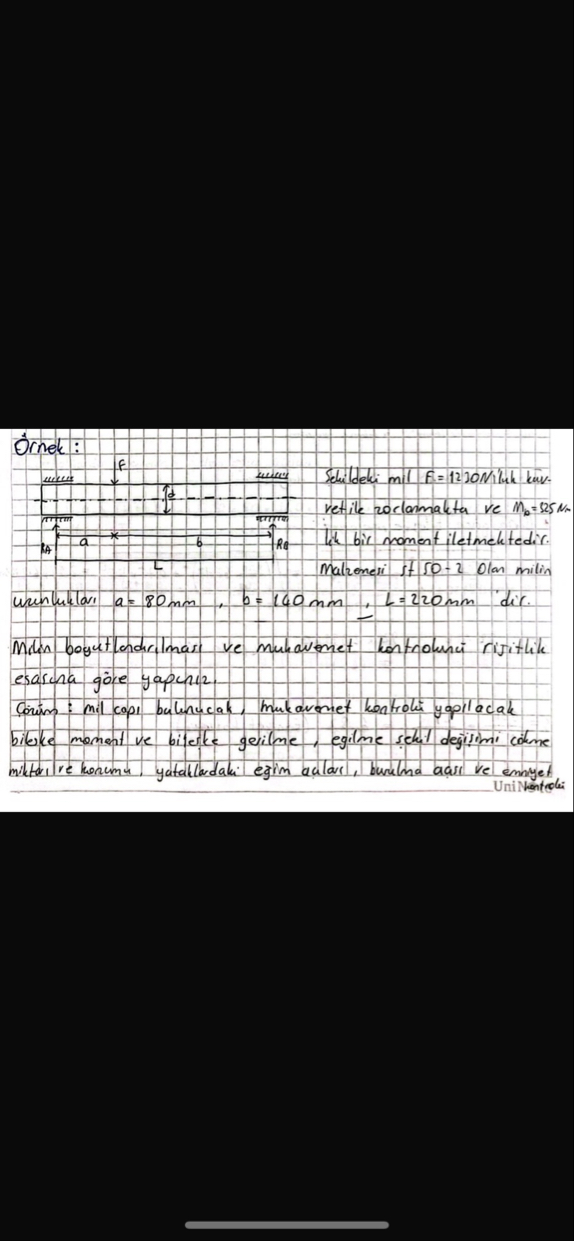 Örnek :
F
Şekildeki mil F=1230N'luk kuv-
d
vetile zorlanmakta ve Mb=525 Nm
RA a b RB lik bir moment iletmektedir.
L
Malzemesi st 50-2 Olan milin
uzunlukları a= 80mm , b= 140mm , L=220mm 'dir.
Milin boyutlandırılması ve mukavemet kontrolünü rijitlik
esasına göre yapınız.
Çözüm : mil çapı bulunucak, mukavemet kontrolü yapılacak
bileşke moment ve bileşke gerilme , eğilme şekil değişimi çökme
miktarı ve konumu, yataklardaki eğim açıları, burulma açısı ve emniyet
kontrolü